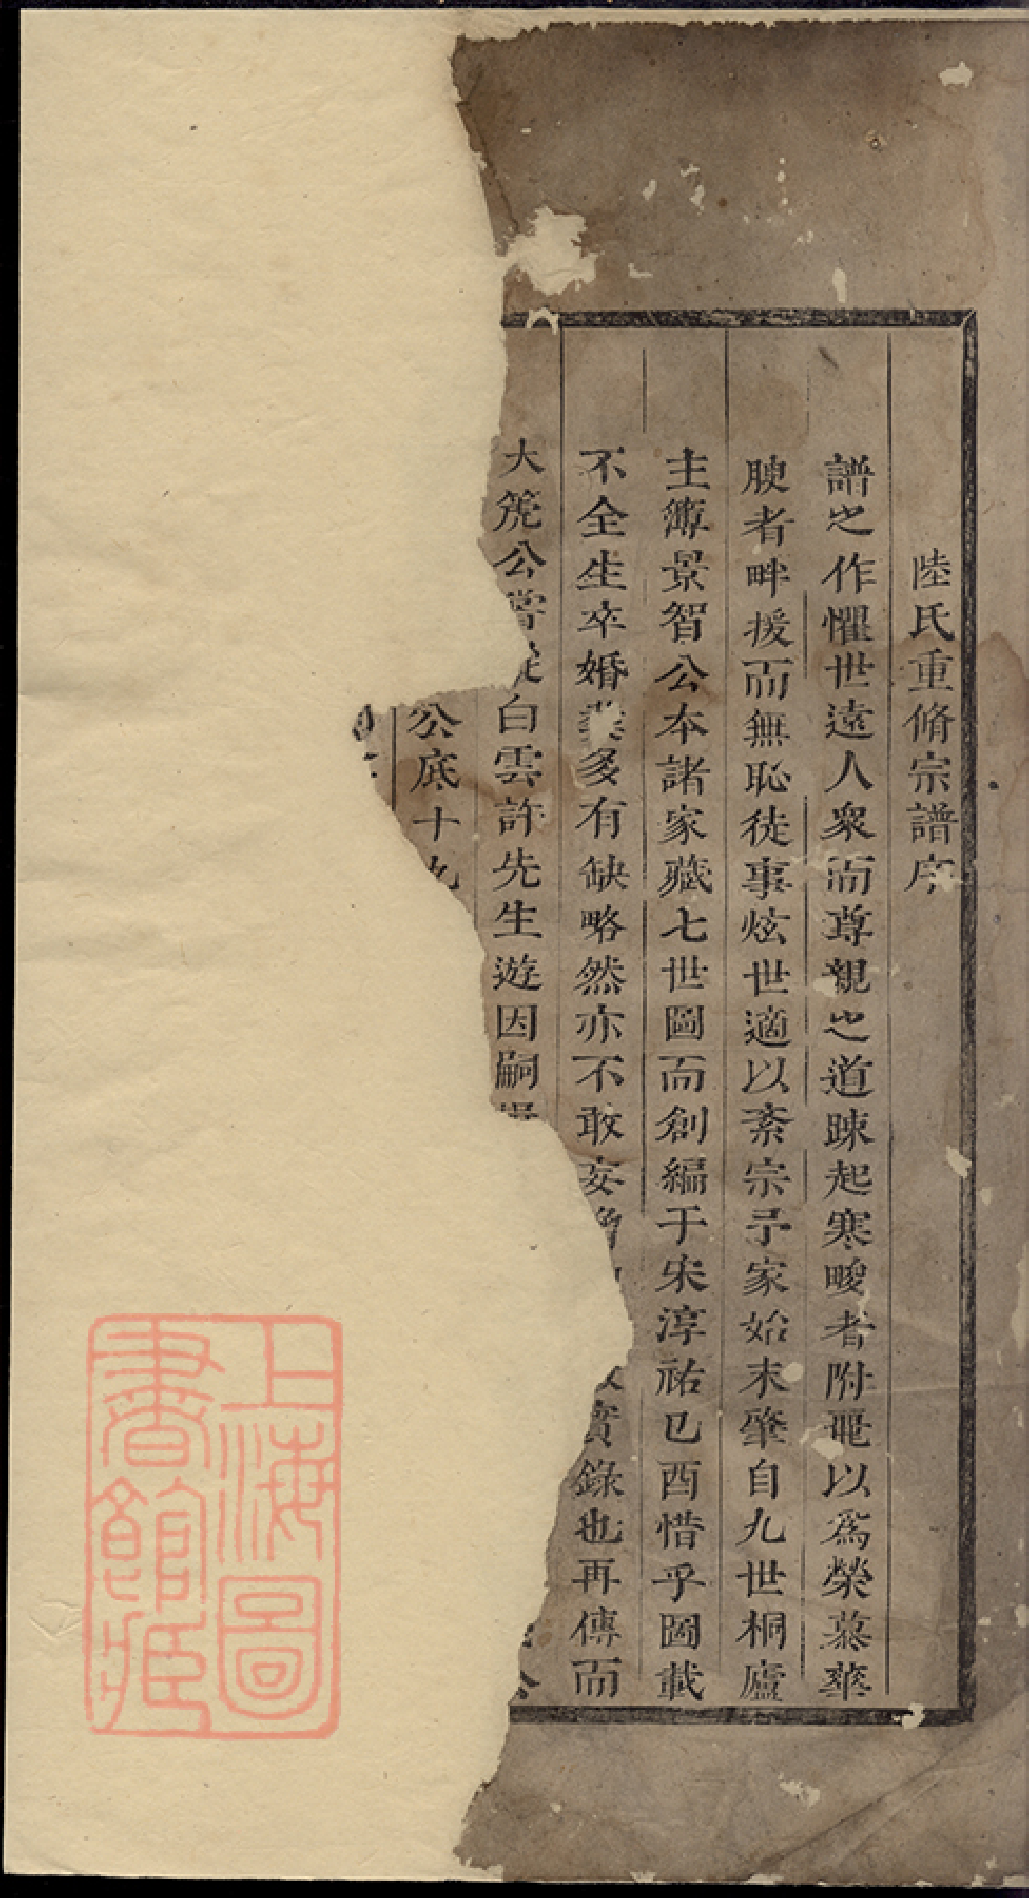 陸氏重脩宗譜序
譜之作懼世遠人衆而尊親之道踈起寒畯者附冕以爲榮慕華
腴者畔援而無恥徒事炫世適以紊宗予家始末肇自九世桐廬
主簿景智公本諸家藏七世圖而創編于宋淳祐已酉惜乎圖載
不全生卒婚塟多有缺略然亦不敢妄 實錄也再傳而
大 公嘗從白雲許先生遊因嗣 公
公底十九
上海圖
書館藏